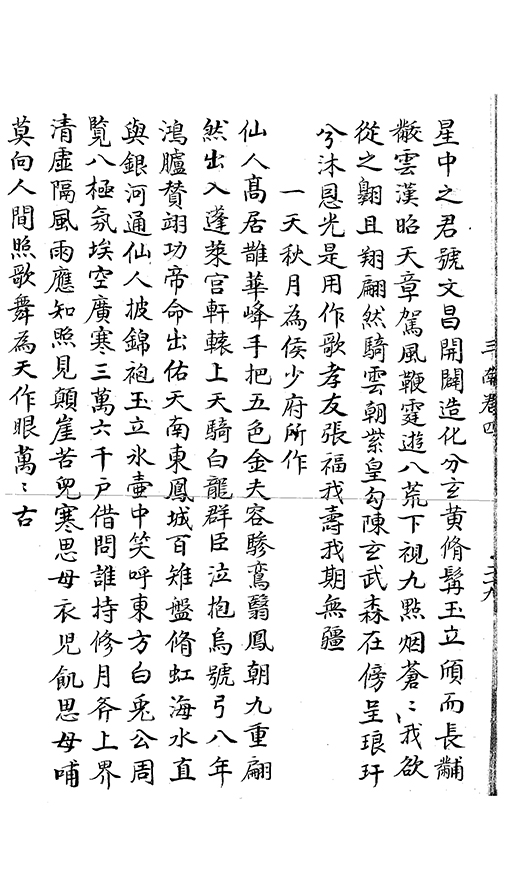 星中之君號文昌開闢造化分玄黃脩髯玉立頎而長黼
黻雲漢昭天章駕風鞭霆遊八荒下視九點烟蒼〻我欲
從之翺且翔翩然騎雲朝紫皇勾陳玄武森在傍呈琅玕
兮沐恩光是用作歌孝友張福我壽我期無疆
一天秋月為侯少府所作
仙人髙居雝華峰手把五色金夫容驂鸞翳鳳朝九重翩
然出入蓬萊宮軒轅上天騎白龍群臣泣抱烏號弓八年
鴻臚賛翊功帝命出佑天南東鳳城百雉盤脩虹海水直
與銀河通仙人披錦袍玉立氷壺中笑呼東方白兎公周
覧八極氛埃空廣寒三萬六千戶借問誰持修月斧上界
清虛隔風雨應知照見顛崖苦兒寒思母衣兒飢思母哺
莫向人間照歌舞為天作眼萬〻古
卷四